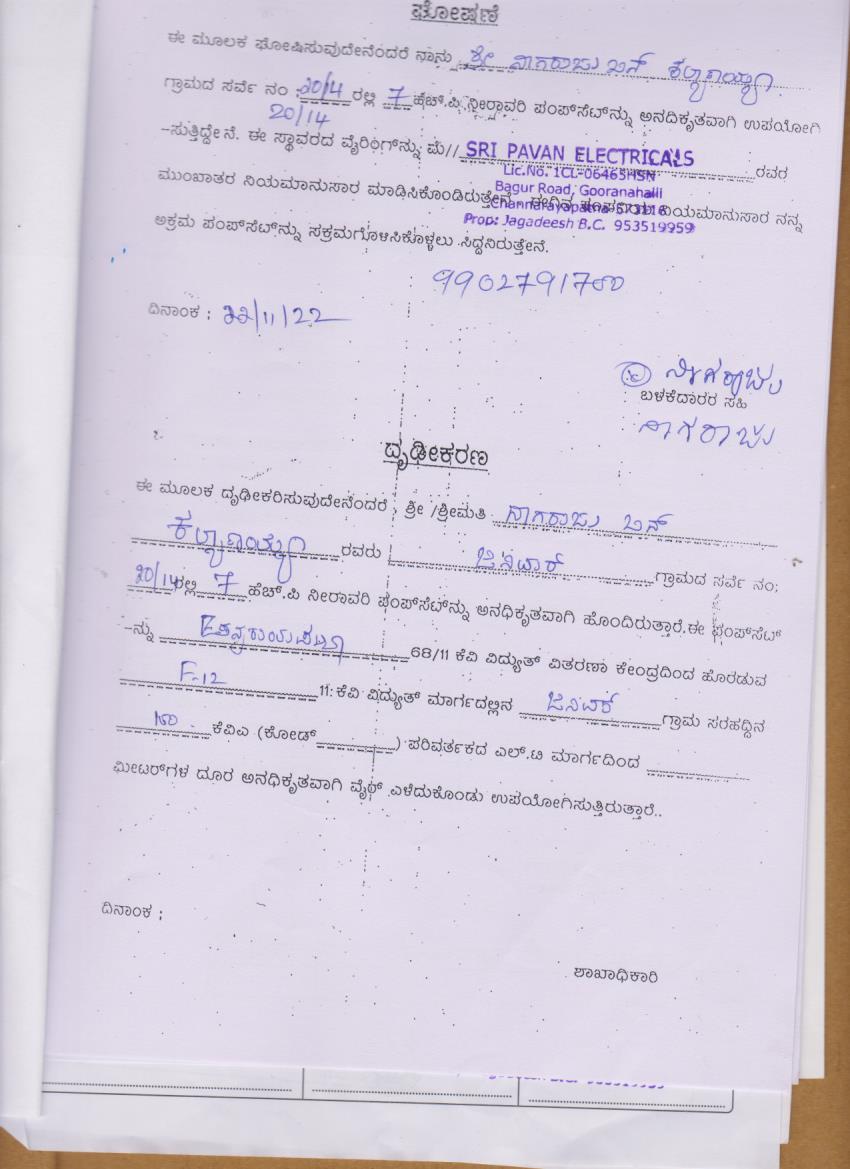 ಘೋಷಣೆ
ಈ ಮೂಲಕ ಘೋಷಿಸುವುದೇನೆಂದರೆ ನಾನು ಶ್ರೀ ನಾಗರಾಜು ಬಿನ್
ಗ್ರಾಮದ ಸರ್ವೆ ನಂ : 20/4 ರಲ್ಲಿ 7 ಹೆಚ್.ಪಿ ನೀರಾವರಿ ಪಂಪ್‌ಸೆಟ್‌ನ್ನು ಅನದಿಕೃತವಾಗಿ ಉಪಯೋಗಿ
20/14
-ಸುತ್ತಿದ್ದೇನೆ. ಈ ಸ್ಥಾವರದ ವೈರಿಂಗ್‌ನ್ನು ಮೆ// SRI PAVAN ELECTRICALS ರವರ
Lic.No. 1CL-06465HSN
Bagur Road, Gooranahalli
ಮುಂಖಾತರ ನಿಯಮಾನುಸಾರ ಮಾಡಿಸಿಕೊಂಡಿರುತ್ತೇನೆ ನಿಯಮಾನುಸಾರ ನನ್ನ
Prop: Jagadeesh B.C. 953519959
ಅಕ್ರಮ ಪಂಪ್‌ಸೆಟ್‌ನ್ನು ಸಕ್ರಮಗೊಳಿಸಿಕೊಳ್ಳಲು ಸಿದ್ದನಿರುತ್ತೇನೆ.
ದಿನಾಂಕ : 22/11/22
ನಾಗರಾಜು
ಬಳಕೆದಾರರ ಸಹಿ
ನಾಗರಾಜು
ದೃಢೀಕರಣ
ಈ ಮೂಲಕ ದೃಢೀಕರಿಸುವುದೇನೆಂದರೆ , ಶ್ರೀ /ಶ್ರೀಮತಿ ನಾಗರಾಜು ಬಿನ್
ರವರು ಜಿನಿವಾರ್ ಗ್ರಾಮದ ಸರ್ವೆ ನಂ:
20/14 ರಲ್ಲಿ 7 ಹೆಚ್.ಪಿ ನೀರಾವರಿ ಪಂಪ್‌ಸೆಟ್‌ನ್ನು ಅನಧಿಕೃತವಾಗಿ ಹೊಂದಿರುತ್ತಾರೆ.ಈ ಪಂಪ್‌ಸೆಟ್
-ನ್ನು 68/11 ಕೆವಿ ವಿದ್ಯುತ್ ವಿತರಣಾ ಕೇಂದ್ರದಿಂದ ಹೊರಡುವ
F-12 11: ಕೆವಿ ವಿದ್ಯುತ್ ಮಾರ್ಗದಲ್ಲಿನ ಜಿನಿವಾರ್ ಗ್ರಾಮ ಸರಹದ್ದಿನ
ಕೆವಿಎ (ಕೋಡ್ ) ಪರಿವರ್ತಕದ ಎಲ್.ಟಿ ಮಾರ್ಗದಿಂದ
ಮೀಟರ್‌ಗಳ ದೂರ ಅನಧಿಕೃತವಾಗಿ ವೈರ್ ಎಳೆದುಕೊಂಡು ಉಪಯೋಗಿಸುತ್ತಿರುತ್ತಾರೆ..
ದಿನಾಂಕ :
ಶಾಖಾಧಿಕಾರಿ